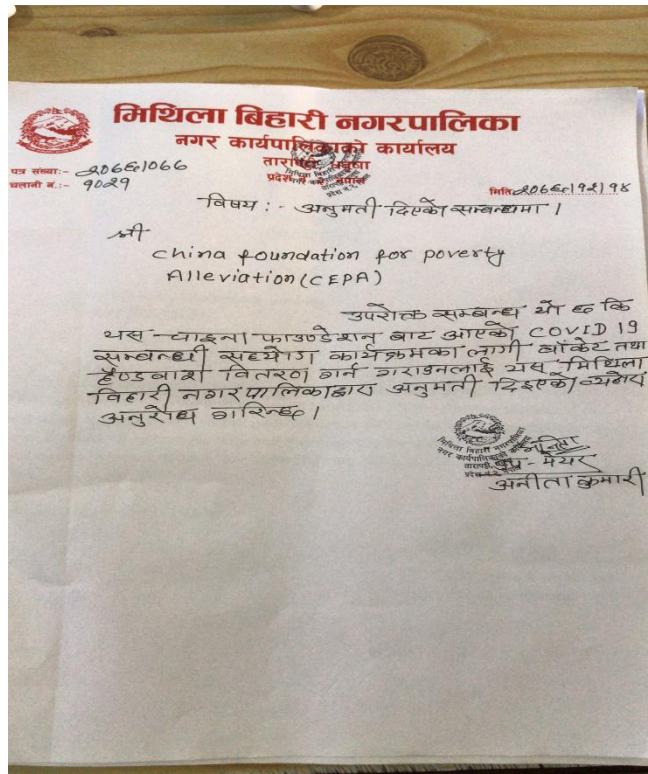 मिथिला बिहारी नगरपालिका
नगर कार्यपालिकाको कार्यालय
तारापट्टी, धनुषा
प्रदेश नं. २, नेपाल
पत्र संख्याः-
चलानी नं.:- १०२१
मिति
विषय :- अनुमती दिएको सम्बन्धमा ।
श्री
China foundation for poverty
Alleviation (CEPA)
उपरोक्त सम्बन्ध यो छ कि
यस चाइना फाउण्डेशन बाट आएको COVID 19
सम्बन्धी सहयोग कार्यक्रमका लागी बाँकेट तथा
हैण्डवाश वितरण गर्न गराउनलाई यस मिथिला
विहारी नगरपालिकाद्वारा अनुमती दिइएको
अनुरोध गरिन्छ ।
मिथिला बिहारी नगरपालिका
नगर कार्यपालिकाको कार्यालय
उप-मेयर
अनीता कुमारी